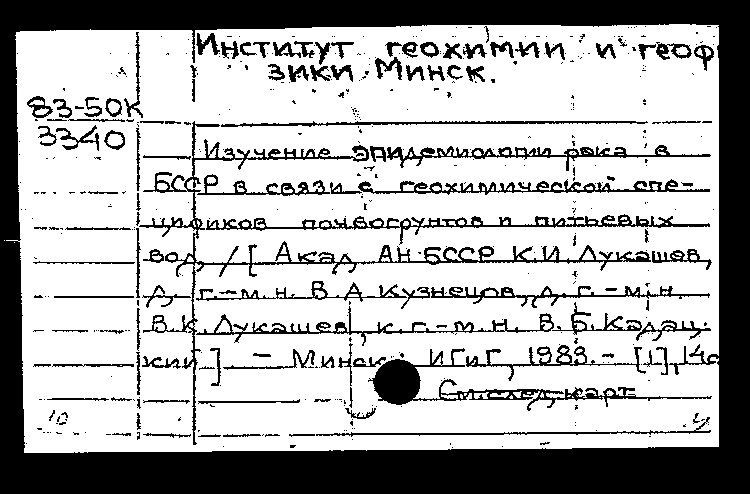 Институт геохимии и геоф
зики Минск.
83-50К
3340
Изучение эпидемиологии рака в
БССР в связи с геохимической спе-
цификов почвогрунтов и питьевых
вод, / [ Акад, АН БССР К.И. Лукашев,
д. г.-м.н. В.А Кузнецов, д. г. - м.н.
В.К. Лукашев, к.г.-м.н. В.Б. Кадац.
кий ] - Минск: ИГиГ, 1983. - [1], 14с
См. след. карт
10